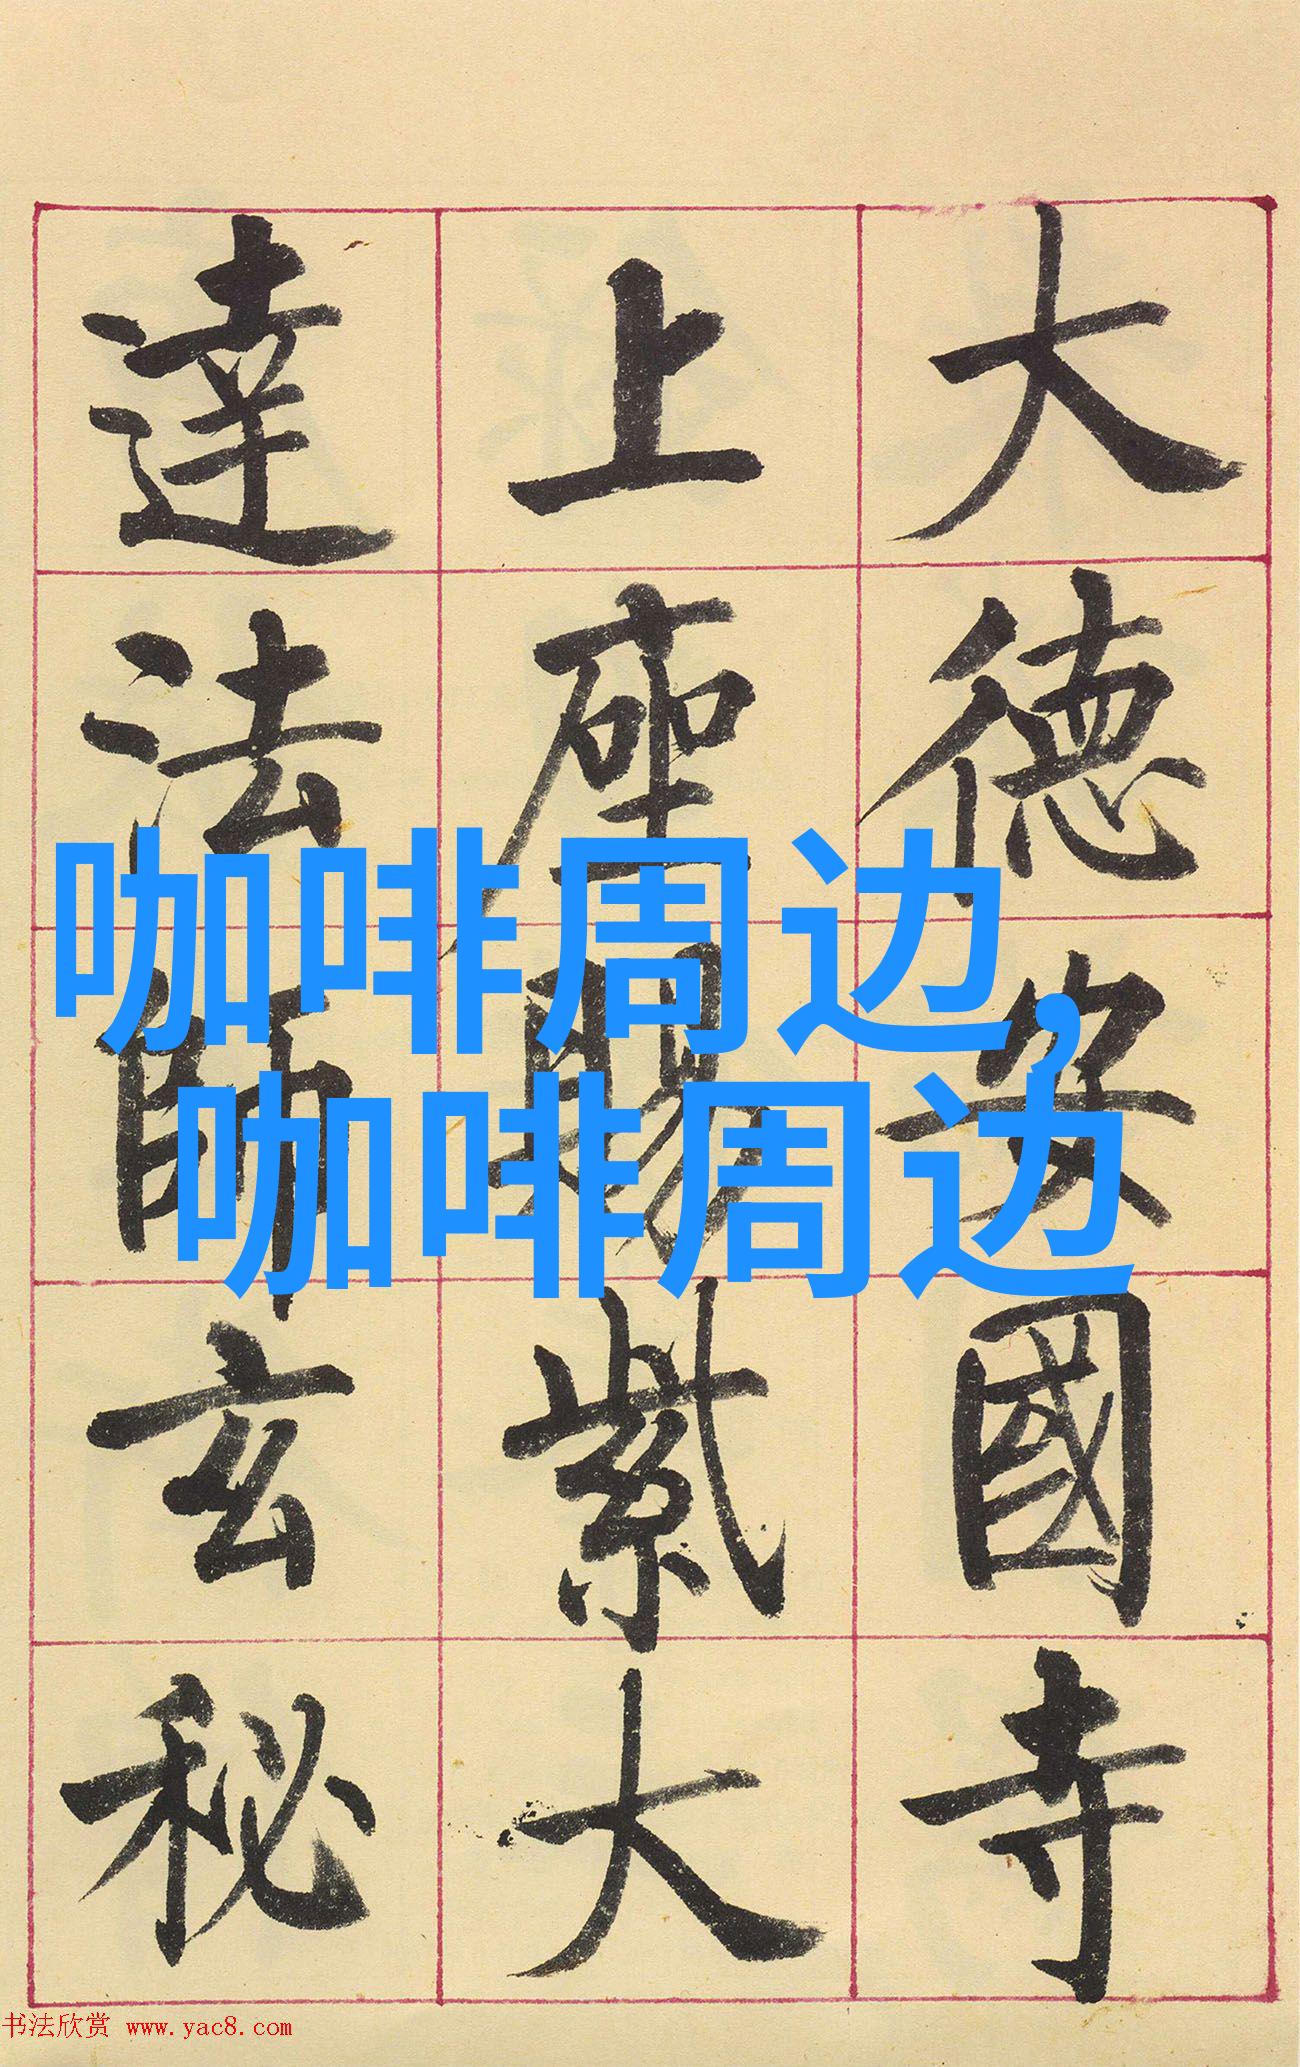 大德安國寺
上座賜紫大
達法師玄秘
咖啡周边,
咖啡周边
书法欣赏 www.yac8.com